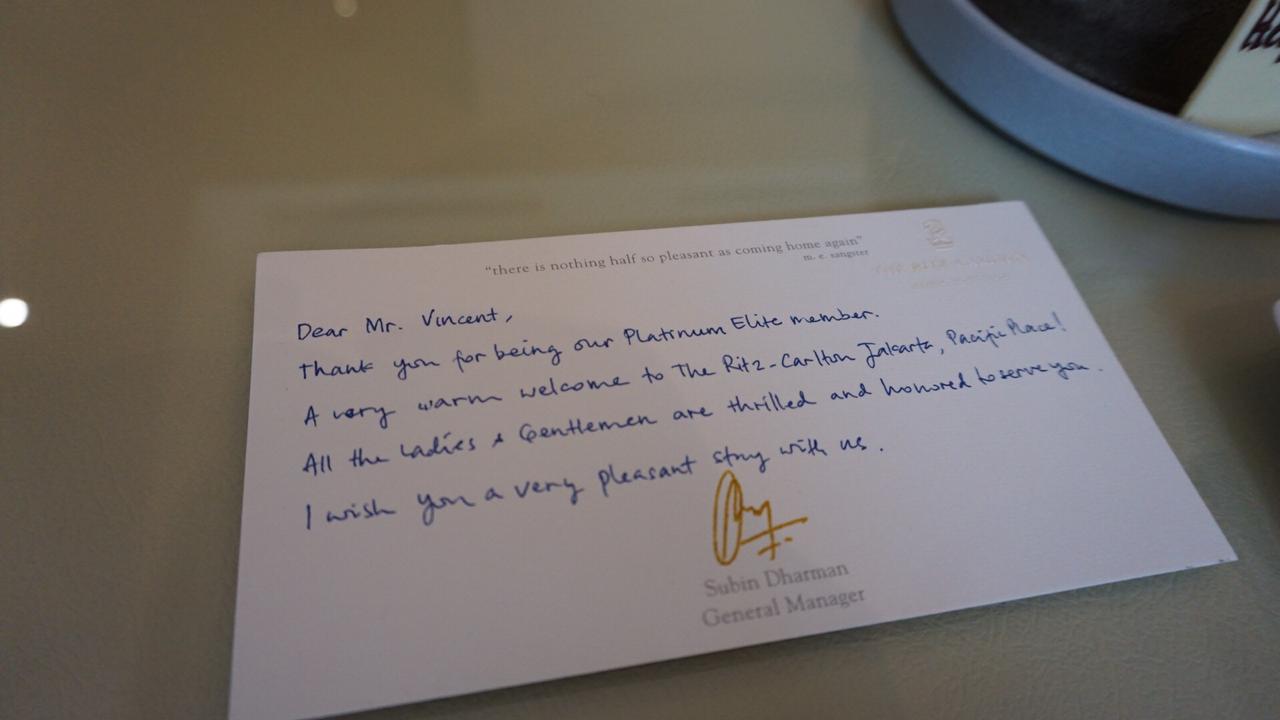 "there is nothing half so pleasant as coming home again"
m. e. sangster
Dear Mr. Vincent,
Thank you for being our Platinum Elite member.
A very warm welcome to The Ritz-Carlton Jakarta, Pacific Place!
All the Ladies & Gentlemen are thrilled and honored to serve you.
I wish you a very pleasant stay with us.
Subin Dharman
General Manager